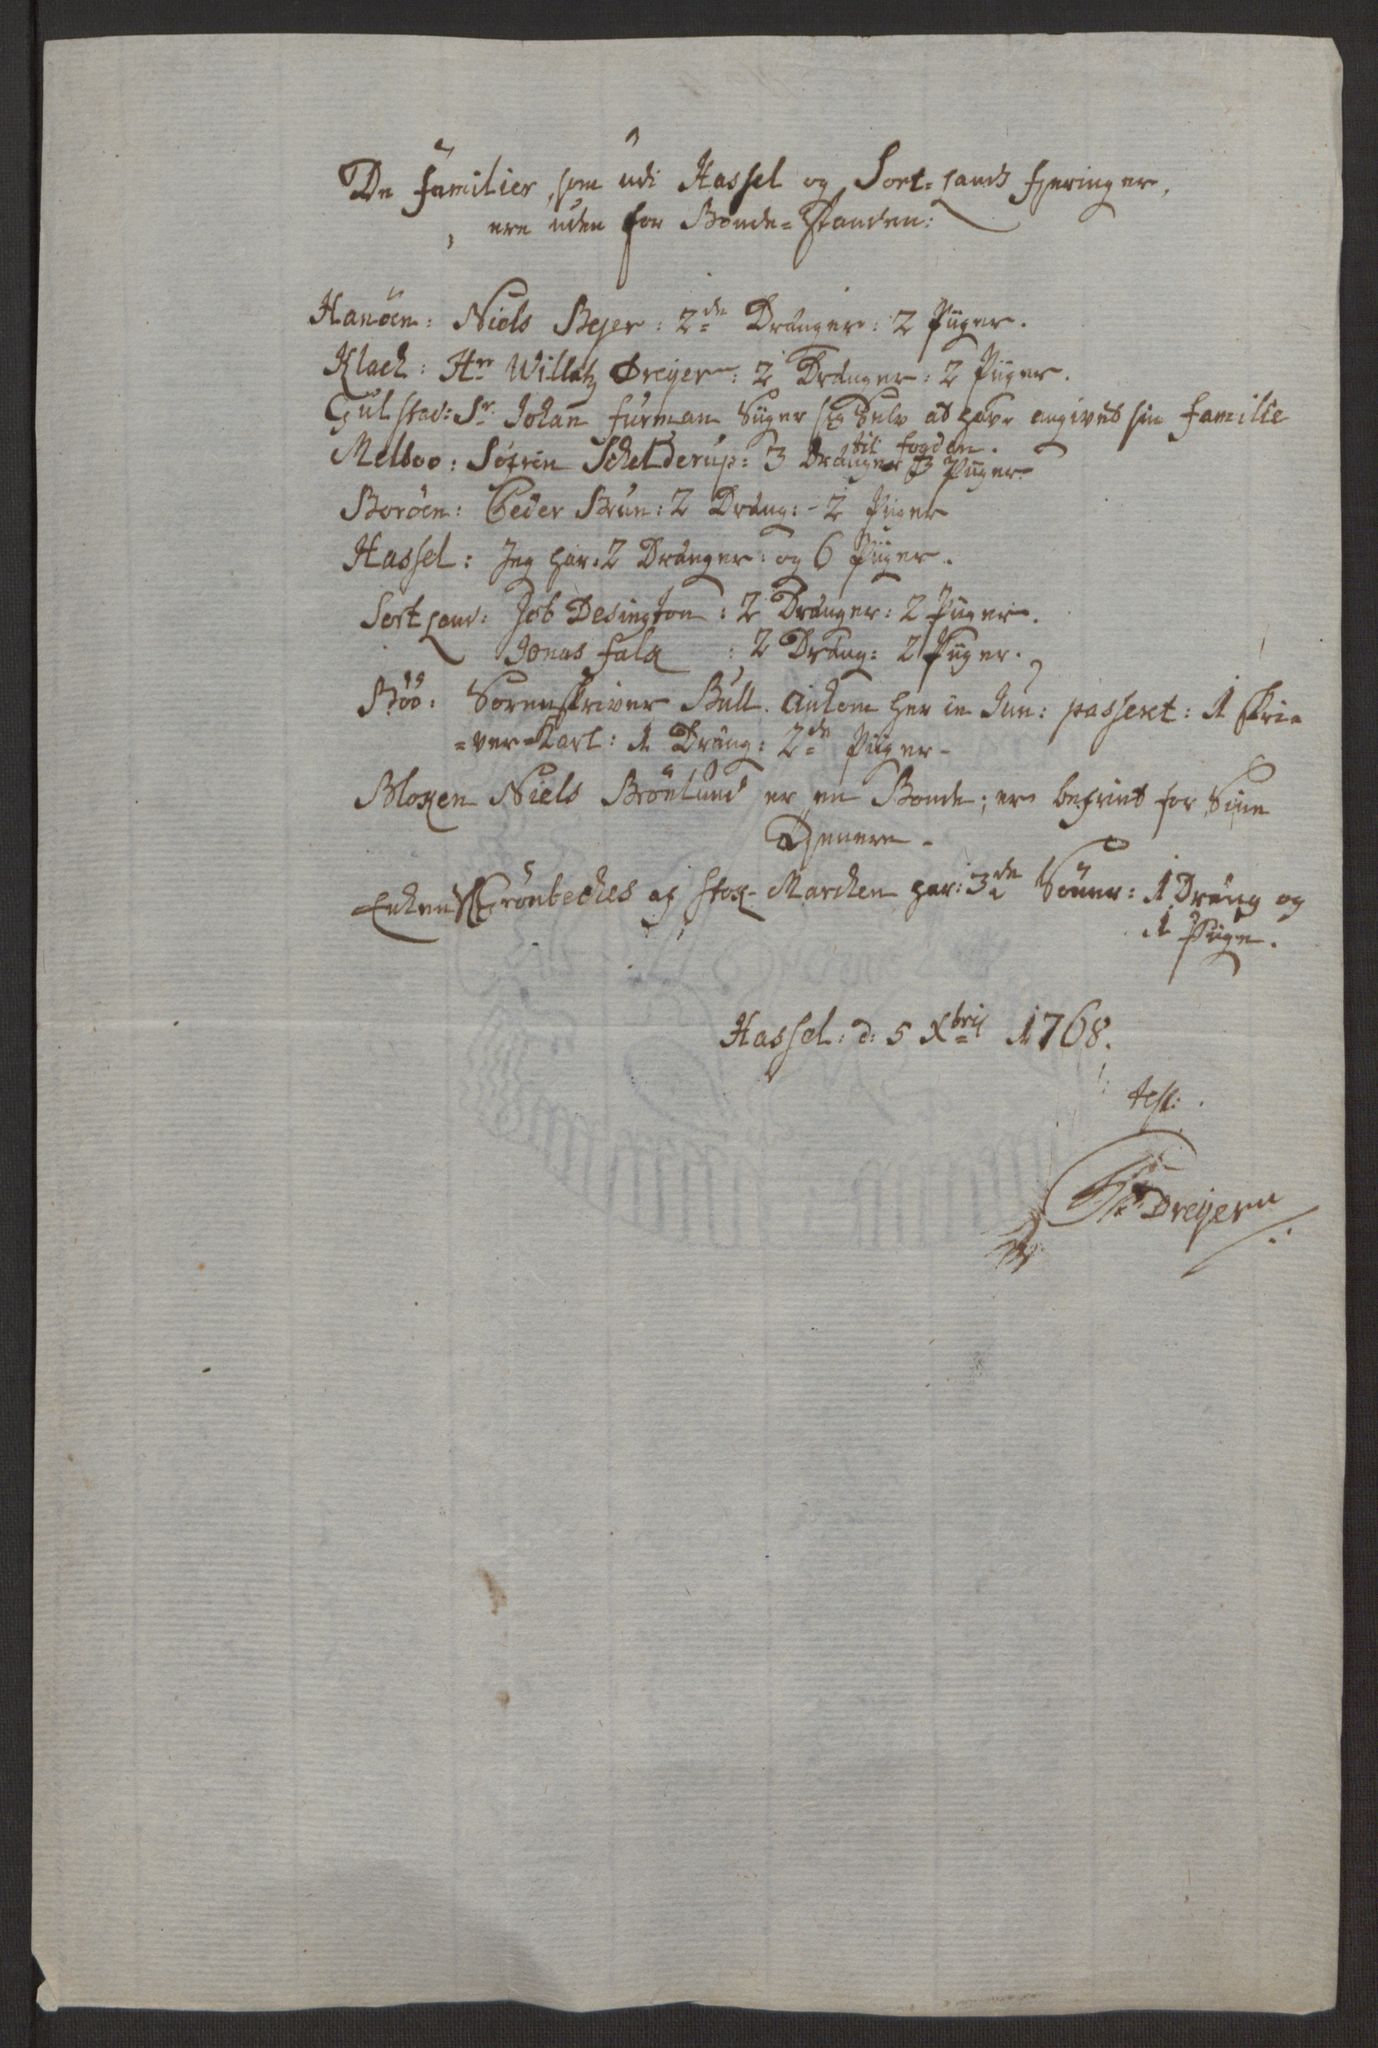 De Familier, som udi Hassel og Sort-Lands Fjeringer,
ere uden for Bonde-Standen:
Hanöen: Niels Bejer: 2de Drænger: 2 Piiger.
Klack: Hr Willatz Dreyer: 2 Drænger: 2 Piiger.
Gulstad: Sr. Johan Furman siiger sig selv at have angivet sin Familie
til Fogden.
Melboo: Söfren Schelderup: 3 Drænger 3 Piiger.
Boröen: Peder Brun: 2 Dræng: 2 Piiger
Hassel: Jeg har: 2 Drænger: og 6 Piiger.
Sortland: Job Desington: 2 Drænger: 2 Piiger.
Jonas Falch: 2 Dræng: 2 Piiger.
Böö: Sorenskriver Bull. Ankom her in Jun: passeret: 1 Skri=
=ver-Karl: 1 Dræng: 2de Piiger-
Bloken Niels Brönlund er en Bonde; er befriet for Sine
Tjenere-
Enken Grönbeches af Stok-Marcken har: 3de Sönner: 1 Dræng og
1 Piige.
Hassel: d: 5 Xbris 1768.
test:
Dreyer